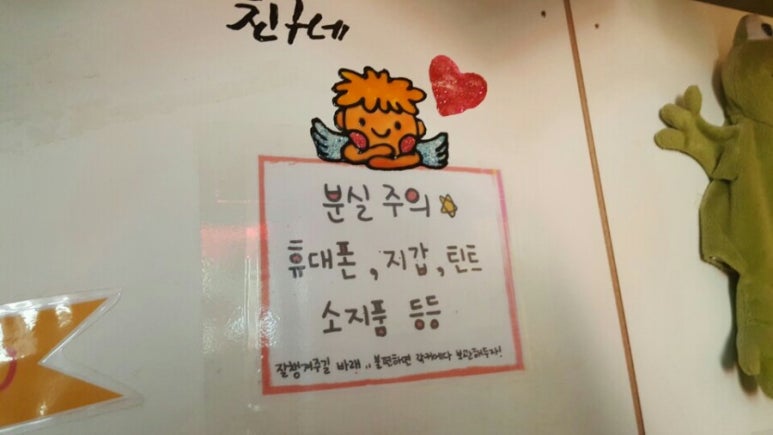 친구네
분실 주의
휴대폰, 지갑, 틴트
소지품 등등
잘챙겨주길 바래,, 불편하면 락커에다 보관해두자!